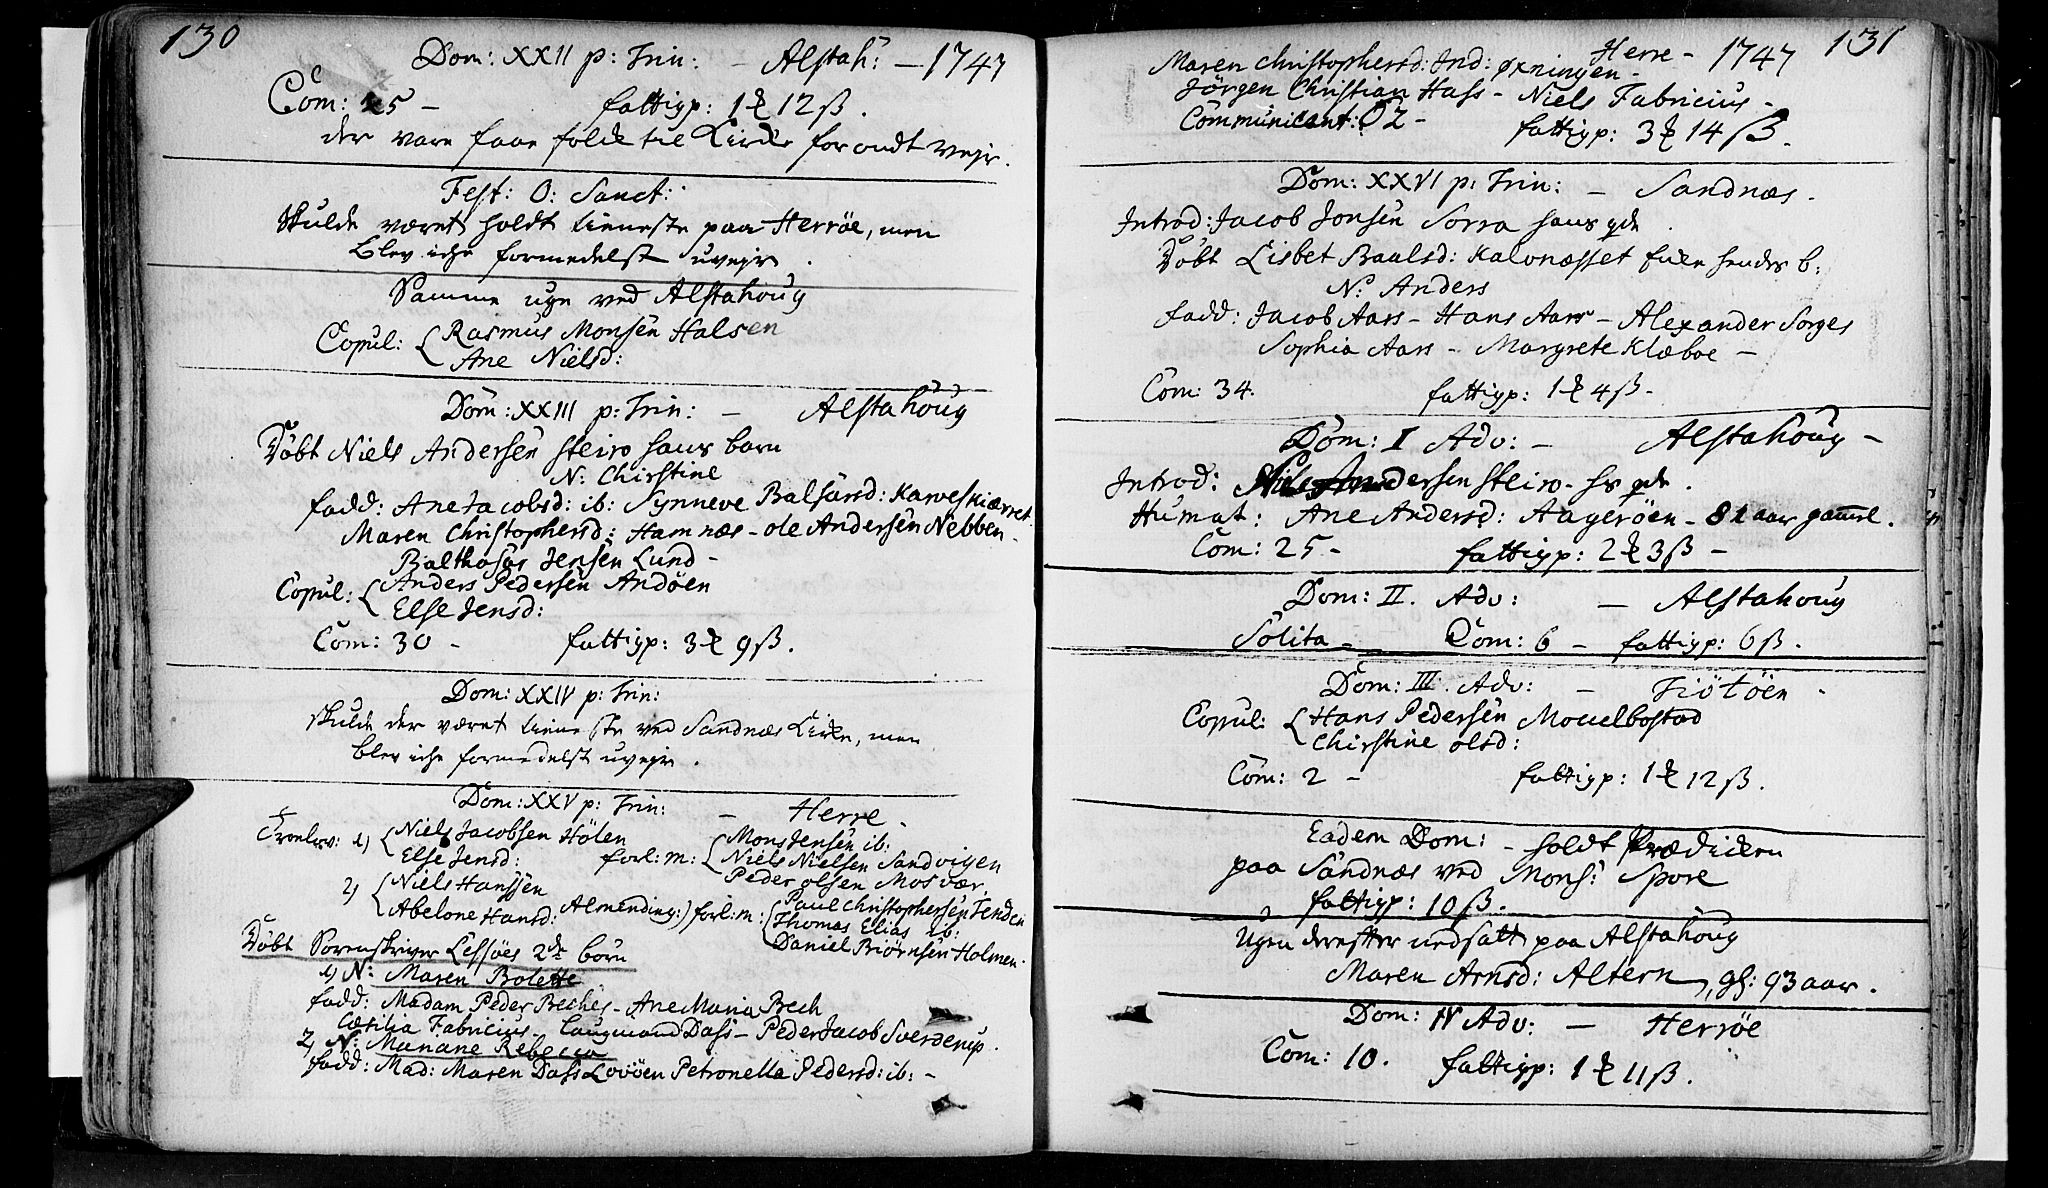 130
Dom: XXII p: Trin: – Alstah: – 1747
Com: 25 – fattigp: 1 ℔ 12 ß.
der vare faae folck til Kircke for ondt vejr.
Fest: O: Sanct:
Skulde været holdt tienneste paa Herröe, men
blev iche formedelst uvejr.
Samme uge ved Alstahoug
Copul: { Rasmus Monsen Halsen
Ane Nielsd:
Dom: XXIII p: Trin: – Alstahoug
Döbt Niels Andersen Steiro hans barn
N: Chirstine
fadd: Ane Jacobsd: ib: Synneve Balsärsd: Karveskiærret
Maren Christophersd: Hamnæs – ole Andersen Nebben –
Balthasar Jensen Lund –
Copul: { Anders Pedersen Andöen
Else Jensd:
Com: 30 – fattigp: 3 ℔ 9 ß.
Dom: XXIV p: Trin:
skulde der været tienneste ved Sandnæs Kircke, men
blev iche formedelst uvejr.
Dom: XXV p: Trin: – Herre –
Troelov: 1) { Niels Jacobsen Hölen
Else Jensd: forl: m: { Mons Jensen ib:
Niels Nielsen Sandvigen
Peder olsen Mosvær
2) { Niels Hanssen
Abelone Hansd: Almending:) forl: m: { Paul Christophersen Tenden
Thomas Elias ib:
Daniel Biörnsen Holmen.
Döbt Sorenskriver Lessöes 2de börn
1) N: Maren Bolette
fadd: Madam Peder Beches – Ane Maria Bech
Cæcilia Fabricius – Laugmand Dass – Peder Jacob Sverderup.
2) N: Mariane Rebecca
fadd: Mad: Maren Dass Lovöen Petronella Pedersd: ib: –
Herre – 1747 131
Maren Christophersd: Ind: öxningen –
Jörgen Christian Hass – Niels Fabricius –
Communicant: 62 – fattigp: 3 ℔ 14 ß.
Dom: XXVI p: Trin: – Sandnæs.
Introd: Jacob Jonsen Sorra hans qde.
Döbt Lisbet Baalsd: Kalvnæsset hendes b:
N: Anders
fadd: Jacob Aars – Hans Aars – Alexander Sorges
Sophia Aars – Margrete Klæboe –
Com: 34. fattigp: 1 ℔ 4 ß.
Dom: I Adv: – Alstahoug –
Introd: Niels Andersen Steiro – hs qde.
Humat: Ane Andersd: Aageröen – 81 aar gammel.
Com: 25 – fattigp: 2 ℔ 3 ß –
Dom: II. Adv: – Alstahoug
Solita – Com: 6 – fattigp: 6 ß.
Dom: III. Adv: – Tiötöen –
Copul: { Hans Pedersen Mouelbostad
Chirstine olsd:
Com: 2 – fattigp: 1 ℔ 12 ß.
Eadem Dom: – holdt Prædicken
paa Sandnæs ved Mons: Spore
fattigp: 10 ß.
Ugen derefter nedsatt paa Alstahoug
Maren Arnsd: Altern, gl: 93 aar.
Dom: IV Adv: – Herröe
Com: 10. fattigp: 1 ℔ 11 ß.